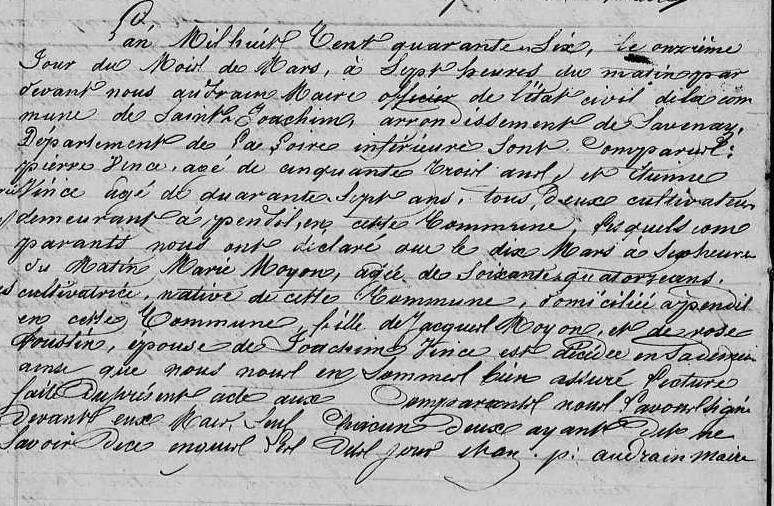 L'an Mil huit Cent quarante Six, le onzième
Jour du Mois de Mars, à Sept heures du matin par
devant nous audrain Maire officier de l'état civil de la com
mune de Saint Joachim, arrondissement de Savenay,
Département de La Loire inférieure Sont Comparus:
pierre Vince, agé de cinquante trois ans, et
Vince agé de quarante Sept ans, tous Deux cultivateurs
demeurant à pendil, en cette Commune, lesquels com
parants nous ont déclaré que le dix Mars à Six heures
du Matin Marie Moyon, agée de Soixante quatorze ans,
cultivatrice, native de cette Commune, domiciliée à pendil
en cette Commune, fille de Jacques Moyon, et de rose
épouse de Joachim Vince est décédée en Sa demeure
ainsi que nous nous en Sommes bien assuré lecture
faite Du présent acte aux Comparants nous l'avons Signé
Devant eux Mais Seul Chacun Deux ayant dit ne
Savoir De ce enquis Les Dits jour et an. p. audrain maire